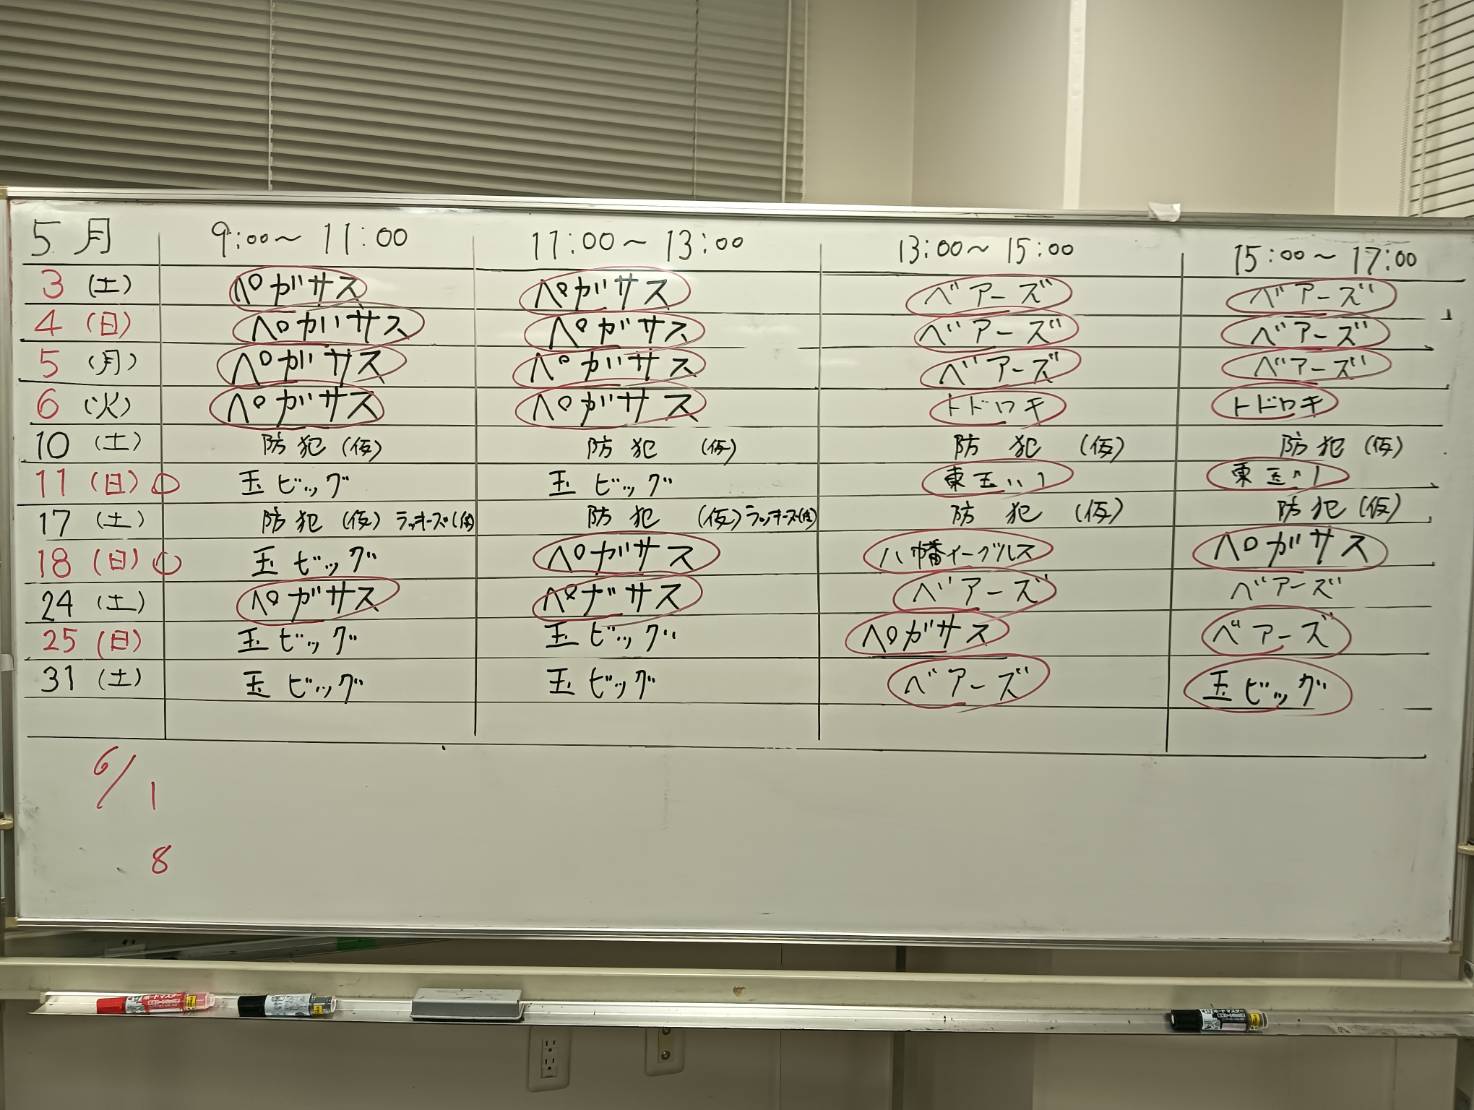 5月 9:00～11:00 11:00～13:00 13:00～15:00 15:00～17:00
3 (土) ペガサス ペガサス ベアーズ ベアーズ
4 (日) ペガサス ペガサス ベアーズ ベアーズ
5 (月) ペガサス ペガサス ベアーズ ベアーズ
6 (火) ペガサス ペガサス トドロキ トドロキ
10 (土) 防犯(仮) 防犯(仮) 防犯(仮) 防犯(仮)
11 (日) 玉ビッグ 玉ビッグ 東玉 東玉
17 (土) 防犯(仮) 防犯(仮) 防犯(仮) 防犯(仮)
18 (日) 玉ビッグ ペガサス 八幡イーグルス ペガサス
24 (土) ペガサス ペガサス ベアーズ ベアーズ
25 (日) 玉ビッグ 玉ビッグ ペガサス ベアーズ
31 (土) 玉ビッグ 玉ビッグ ベアーズ 玉ビッグ
6/1
8